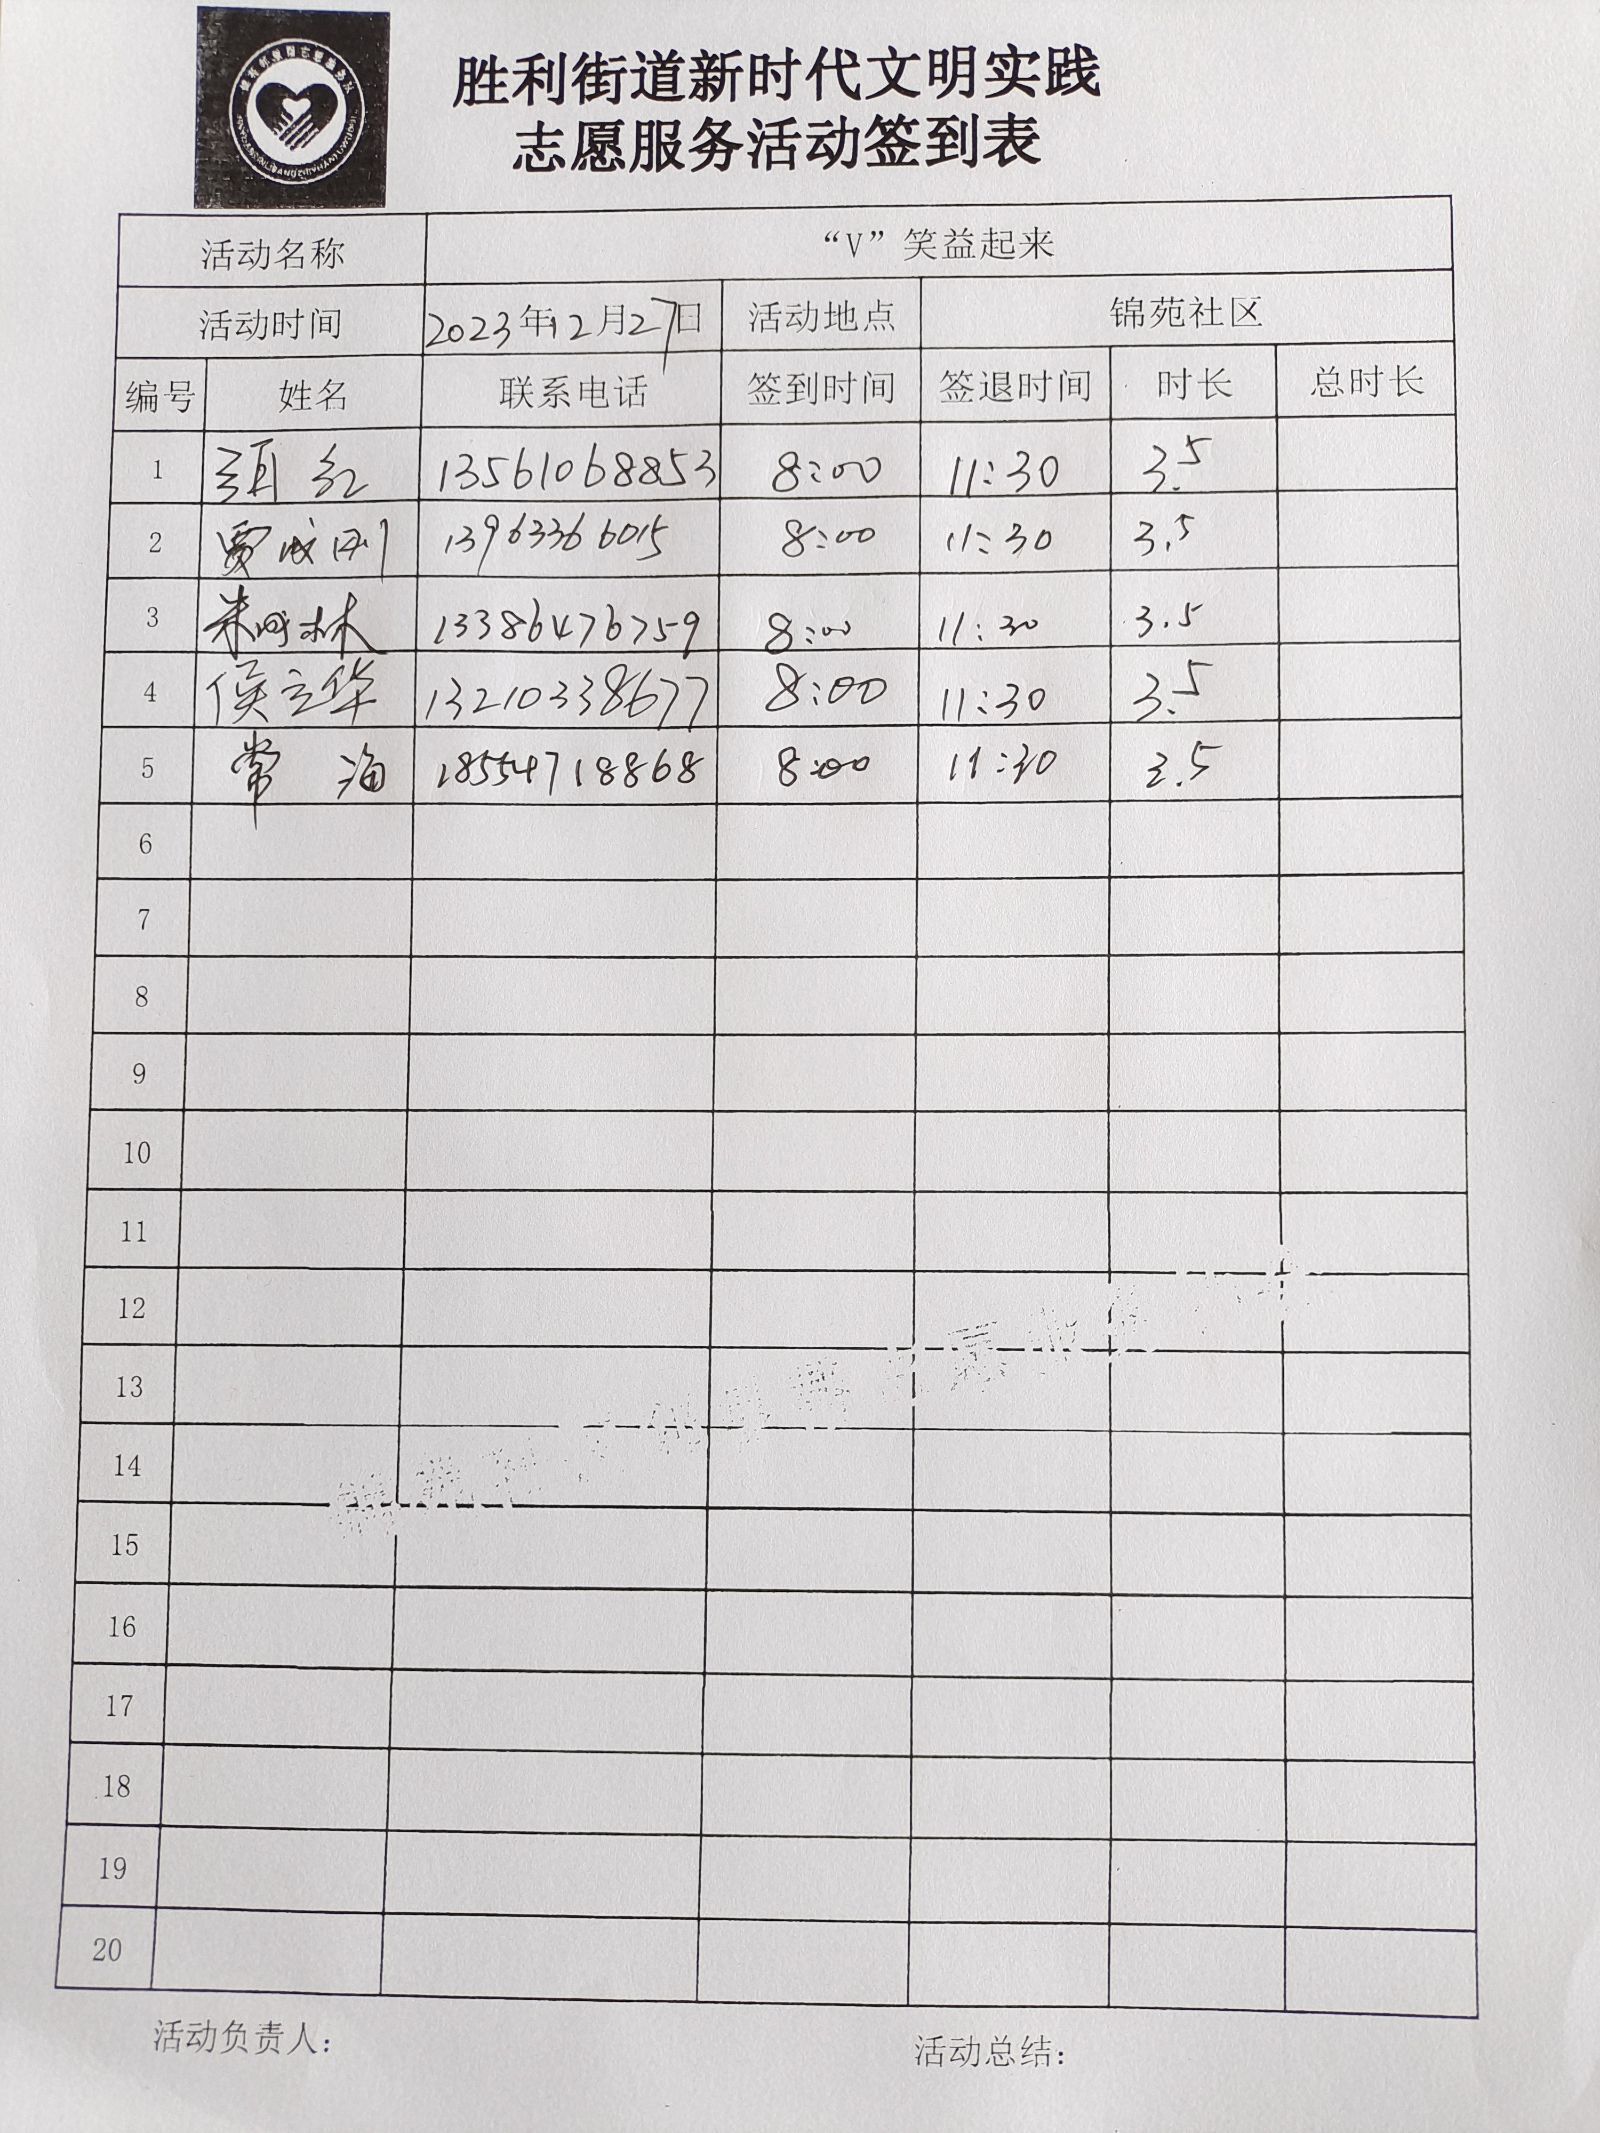 胜利街道新时代文明实践
志愿服务活动签到表
活动名称 “V”笑益起来
活动时间 2023年12月27日 活动地点 锦苑社区
编号 姓名 联系电话 签到时间 签退时间 时长 总时长
1 红 13561068853 8:00 11:30 3.5
2 贾成刚 13963366015 8:00 11:30 3.5
3 林 13386476759 8:00 11:30 3.5
4 侯立华 13210338677 8:00 11:30 3.5
5 常海 18554718868 8:00 11:30 3.5
6
7
8
9
10
11
12
13
14
15
16
17
18
19
20
活动负责人： 活动总结：